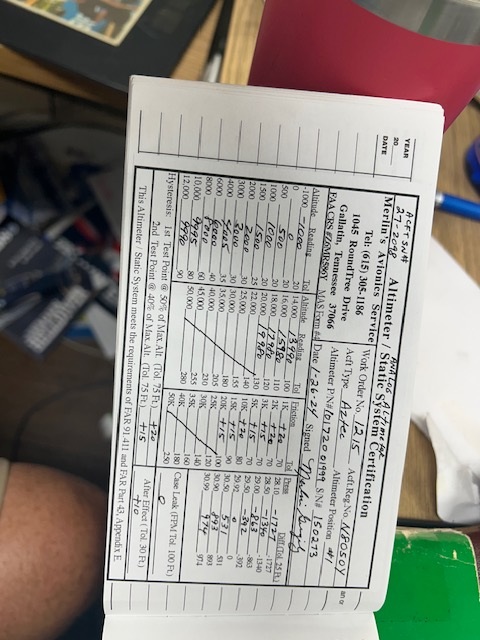 YEAR
20
DATE
ACFT S/N#
27-2098
Altimeter / Static System Certification
Merlin's Avionics Service
Tel: (615) 305-1186
1045 RoundTree Drive
Gallatin, Tennessee 37066
Work Order No. 1215
Acft Reg.No. N8050Y
Acft Type Aztec
Altimeter Position #1
Altimeter P/N# 101720 01999 S/N# 150273
MAS Form #4 Date 1-26-24 Signed
Altitude Reading Tol Altitude Reading Tol Friction Tol Press Diff (Tol. 25 Ft.)
-1000 -1000 20 14,000 13990 100 1K +20 70 28.10 -1727 -1727
0 0 20 16,000 15980 110 2K +20 70 28.50 -1340 -1340
500 500 20 18,000 17980 120 3K +15 70 29.00 -863 -863
1000 1000 20 20,000 19980 130 5K +15 70 29.50 -392 -392
1500 1500 25 22,000 140 10K +20 80 29.92 0 0
2000 2000 30 25,000 155 15K +15 90 30.50 531 531
3000 3000 30 30,000 180 20K +15 100 30.90 893 893
4000 35 35,000 205 25K 120 30.99 974 974
6000 40 40,000 230 30K 140
8000 60 45,000 255 35K 160
10,000 80 50,000 280 40K 180
12,000 90 50K 250
Case Leak (FPM) (Tol. 100 Ft.)
0
Hysteresis: 1st Test Point @ 50% of Max.Alt. (Tol. 75 Ft.) +20
After Effect (Tol. 30 Ft.)
2nd Test Point @ 40% of Max.Alt. (Tol. 75 Ft.) +15
+10
This Altimeter / Static System meets the requirements of FAR 91.411 and FAR Part 43, Appendix E.